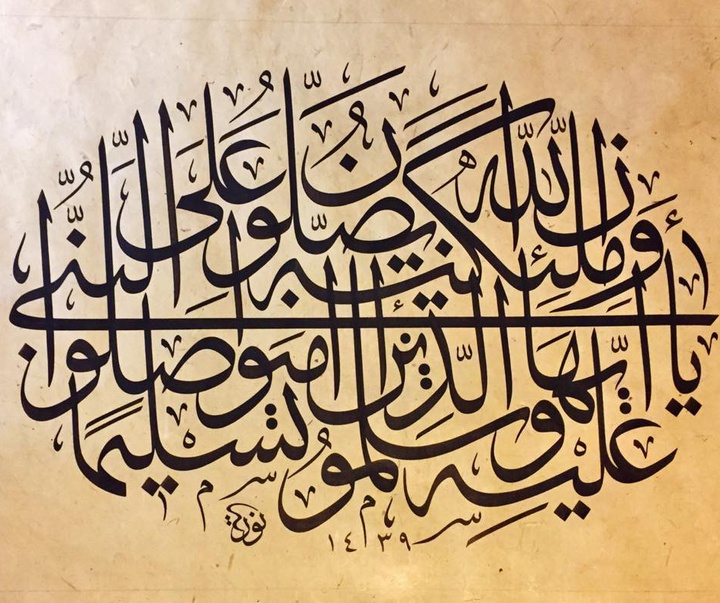 إن الله وملئكته يصلون على النبي
يا أيها الذين آمنوا صلوا
عليه وسلموا تسليما
١٤٣٩